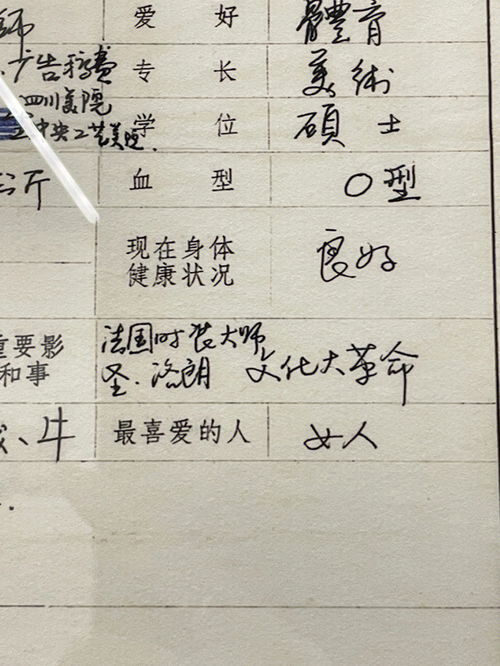 师 爱好 體育
广告稿費 专长 美術
四川美院
中央工艺美院. 学位 碩士
公斤 血型 O型
现在身体
健康状况 良好
重要影 法国时装大师
和事 圣.洛朗 文化大革命
、牛 最喜爱的人 女人